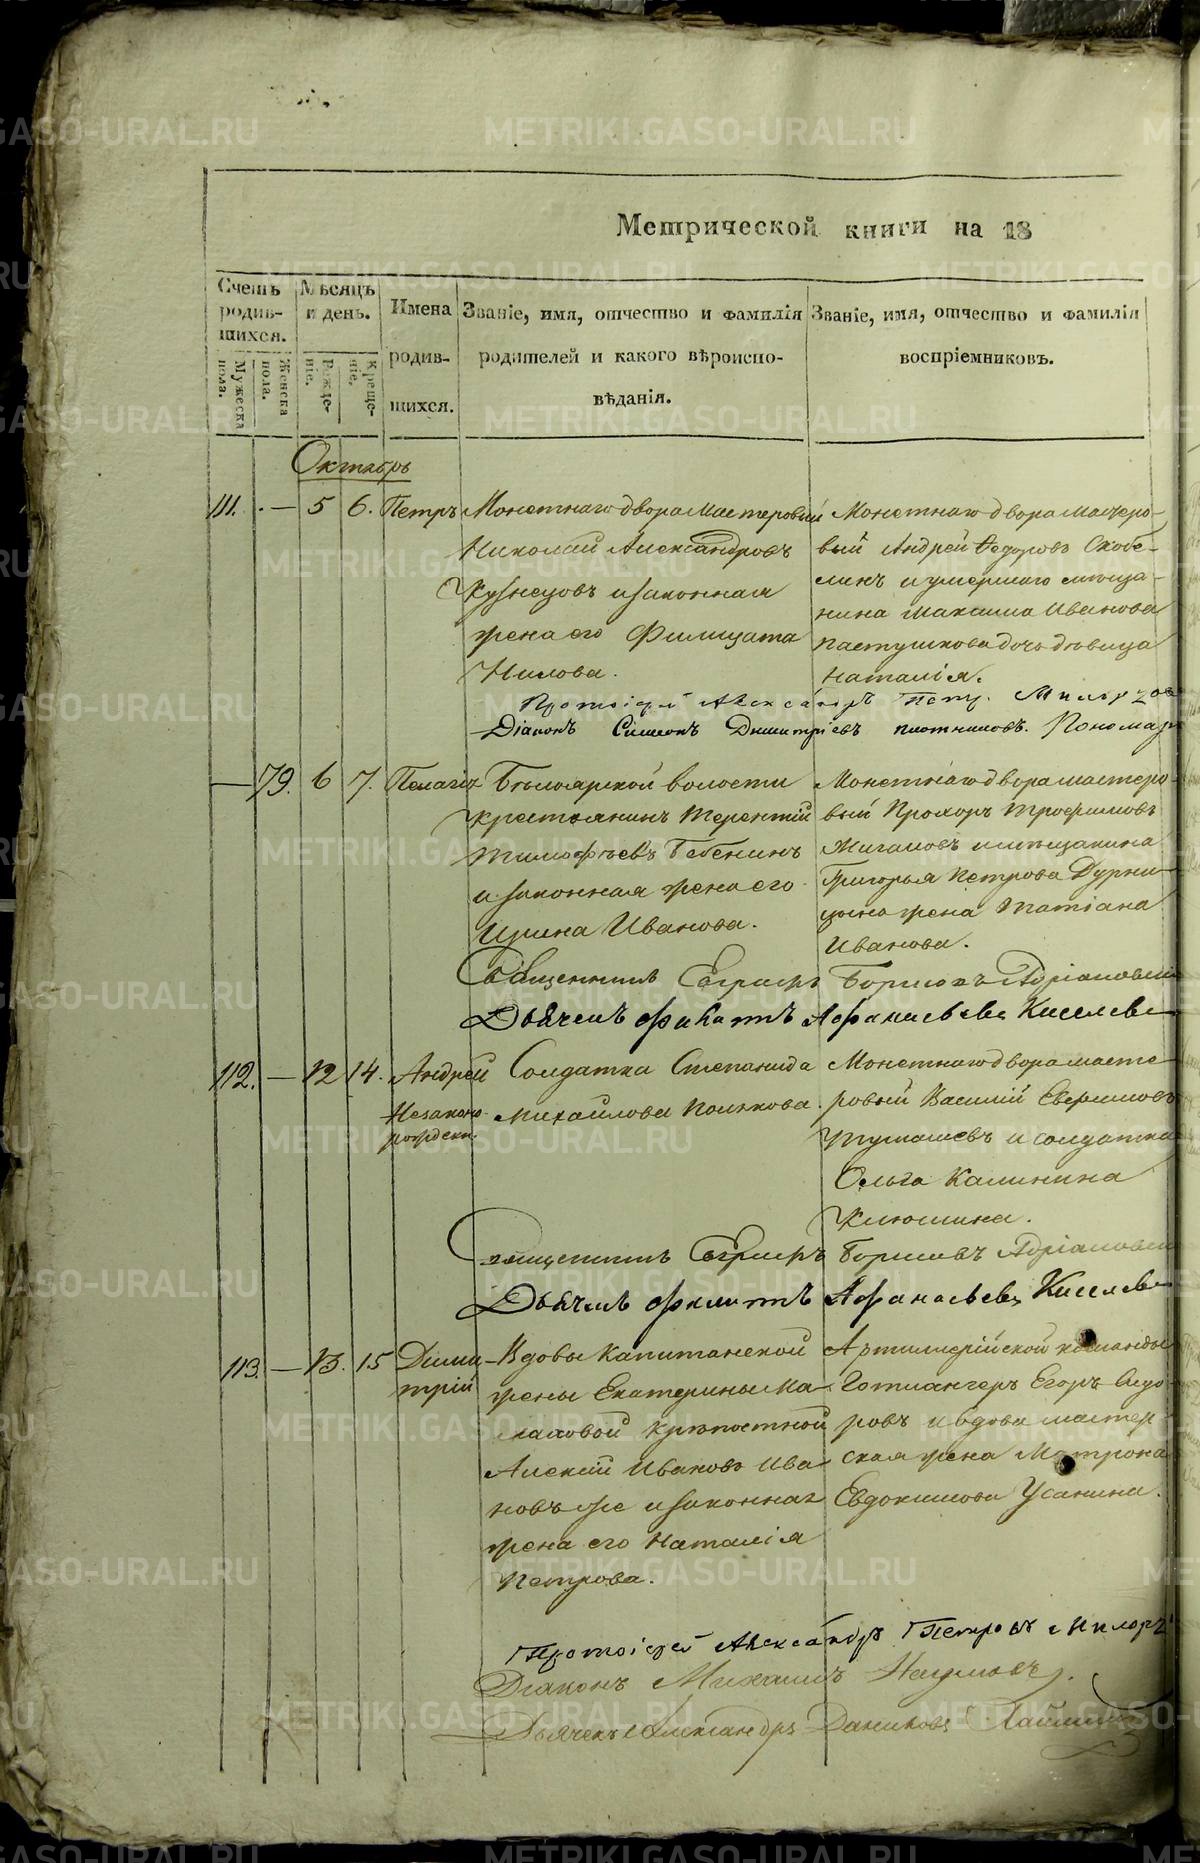 Метрической книги на 18
Счетъ родив-шихся.
Мѣсяцъ и день.
Имена родив-шихся.
Званіе, имя, отчество и фамилія родителей и какого вѣроиспо-вѣданія.
Званіе, имя, отчество и фамилія воспріемниковъ.
Мужеска пола.
Женска пола.
Рожде-ніе.
Креще-ніе.
Октябрь
111. — 5 6. Петръ
Монетнаго двора мастеровый
Николай Александровъ
Кузнецовъ и законная
жена его Филицата
Нилова.
Монетнаго двора мастеро-
вый Андрей Ѳедоровъ Скобе-
линъ и умершаго мѣща-
нина Максима Иванова
Пастушкова дочь дѣвица
Наталія.
Протоіерей Александръ Петр.
Діаконъ Симеонъ Димитріевъ Плотниковъ. Пономарь
— 79. 6 7. Пелагія
Бѣлоярской волости
крестьянинъ Терентій
Тимофѣевъ Бебенинъ
и законная жена его
Ирина Иванова.
Монетнаго двора мастеро-
вый Прохоръ Трофимовъ
Жигаловъ и мѣщанина
Григорья Петрова Дурни-
цына жена Татіана
Иванова.
Священникъ Евграфъ Борисовъ Адріановскій
Дьячекъ Филатъ Афанасьевъ Киселевъ
112. — 12 14. Андрей
Незаконо-
рожден.
Солдатка Степанида
Михайлова Полькова.
Монетнаго двора масте-
ровый Василій Евфимовъ
Тумашевъ и солдатка
Ольга Калинина
Клюшина.
Священникъ Евграфъ Борисовъ Адріановскій
Дьячекъ Филатъ Афанасьевъ Киселевъ
113. — 13. 15 Дими-
трій
Вдовы капитанской
жены Екатерины Ма-
лаховой крѣпостной
Алексій Ивановъ Ива-
новъ же и законная
жена его Наталія
Петрова.
Артиллерійской команды
Готлангеръ Егоръ Ѳедо-
ровъ и вдова мастер-
ская жена Матрона
Евдокимова Усанина.
Протоіерей Александръ Петровъ
Діаконъ Михаилъ Наумовъ.
Дьячекъ Александръ Даниловъ
METRIKI.GASO-URAL.RU